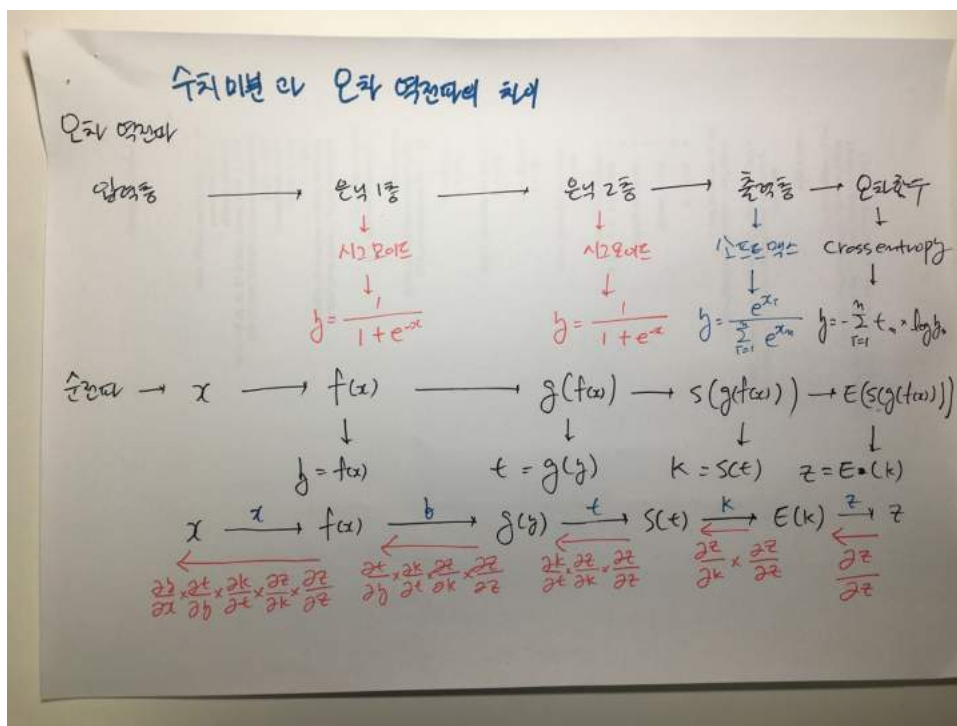 수치미분 과 오차 역전파의 차이
오차 역전파
입력층 → 은닉 1층 → 은닉 2층 → 출력층 → 오차함수
↓ ↓ ↓ ↓
시그모이드 시그모이드 소프트맥스 Cross entropy
↓ ↓ ↓ ↓
y = 1 / (1 + e^-x) y = 1 / (1 + e^-x) y = e^xi / Σ_{i=1}^{n} e^xn y = -Σ_{i=1}^{n} t_n × log y_n
순전파 → x → f(x) → g(f(x)) → S(g(f(x))) → E(S(g(f(x))))
↓ ↓ ↓ ↓
y = f(x) t = g(y) k = S(t) z = E(k)
x —x→ f(x) —y→ g(y) —t→ S(t) —k→ E(k) —z→ z
← ← ← ← ←
∂y/∂x × ∂t/∂y × ∂k/∂t × ∂z/∂k × ∂z/∂z ∂t/∂y × ∂k/∂t × ∂z/∂k × ∂z/∂z ∂k/∂t × ∂z/∂k × ∂z/∂z ∂z/∂k × ∂z/∂z ∂z/∂z